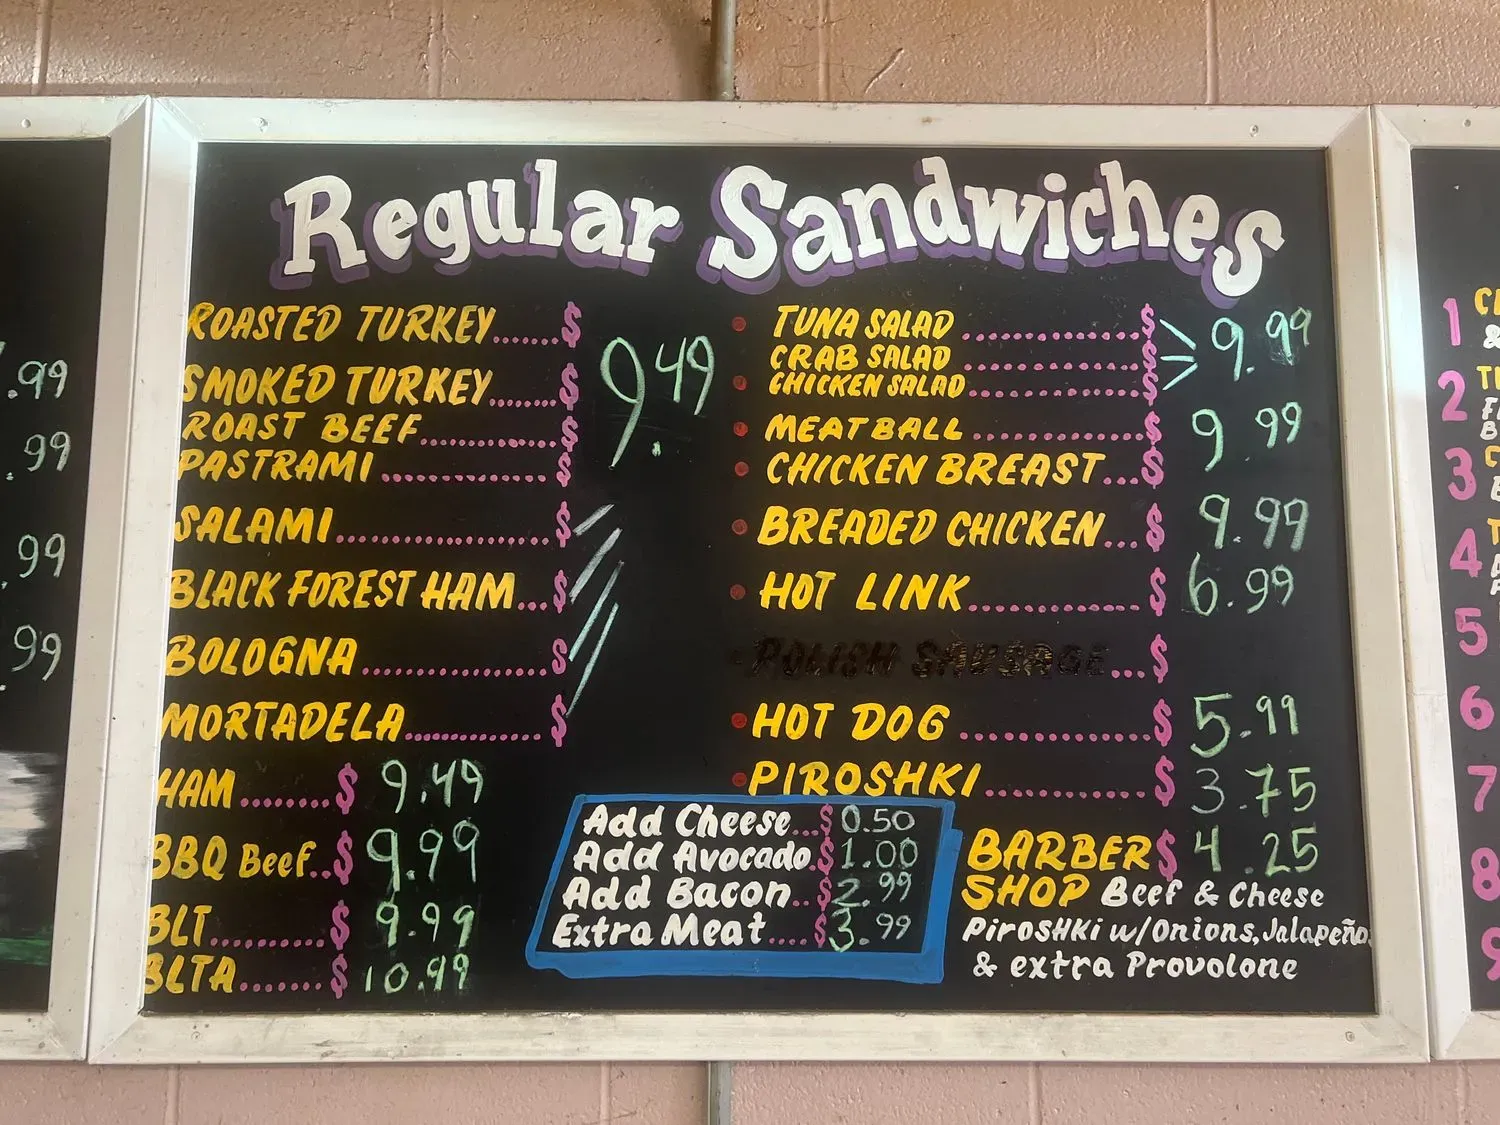 Regular Sandwiches
ROASTED TURKEY......$
SMOKED TURKEY.......$
ROAST BEEF..............$
PASTRAMI..................$
9.49
SALAMI......................$
BLACK FOREST HAM...$
BOLOGNA..................$
MORTADELA..............$
HAM........$ 9.49
BBQ Beef..$ 9.99
BLT..........$ 9.99
BLTA........$ 10.99
TUNA SALAD..................$
CRAB SALAD..................$
CHICKEN SALAD.............$
9.99
MEATBALL..................$ 9.99
CHICKEN BREAST...$
BREADED CHICKEN...$ 9.99
HOT LINK..................$ 6.99
POLISH SAUSAGE...$
HOT DOG..................$ 5.99
PIROSHKI..................$ 3.75
Add Cheese...$ 0.50
Add Avocado.$ 1.00
Add Bacon..$ 2.99
Extra Meat....$ 3.99
BARBER $ 4.25
SHOP Beef & Cheese
PirosHKi w/Onions, Jalapeño
& extra Provolone
.99
.99
.99
.99
1
&
2
3
4
5
6
7
8
9